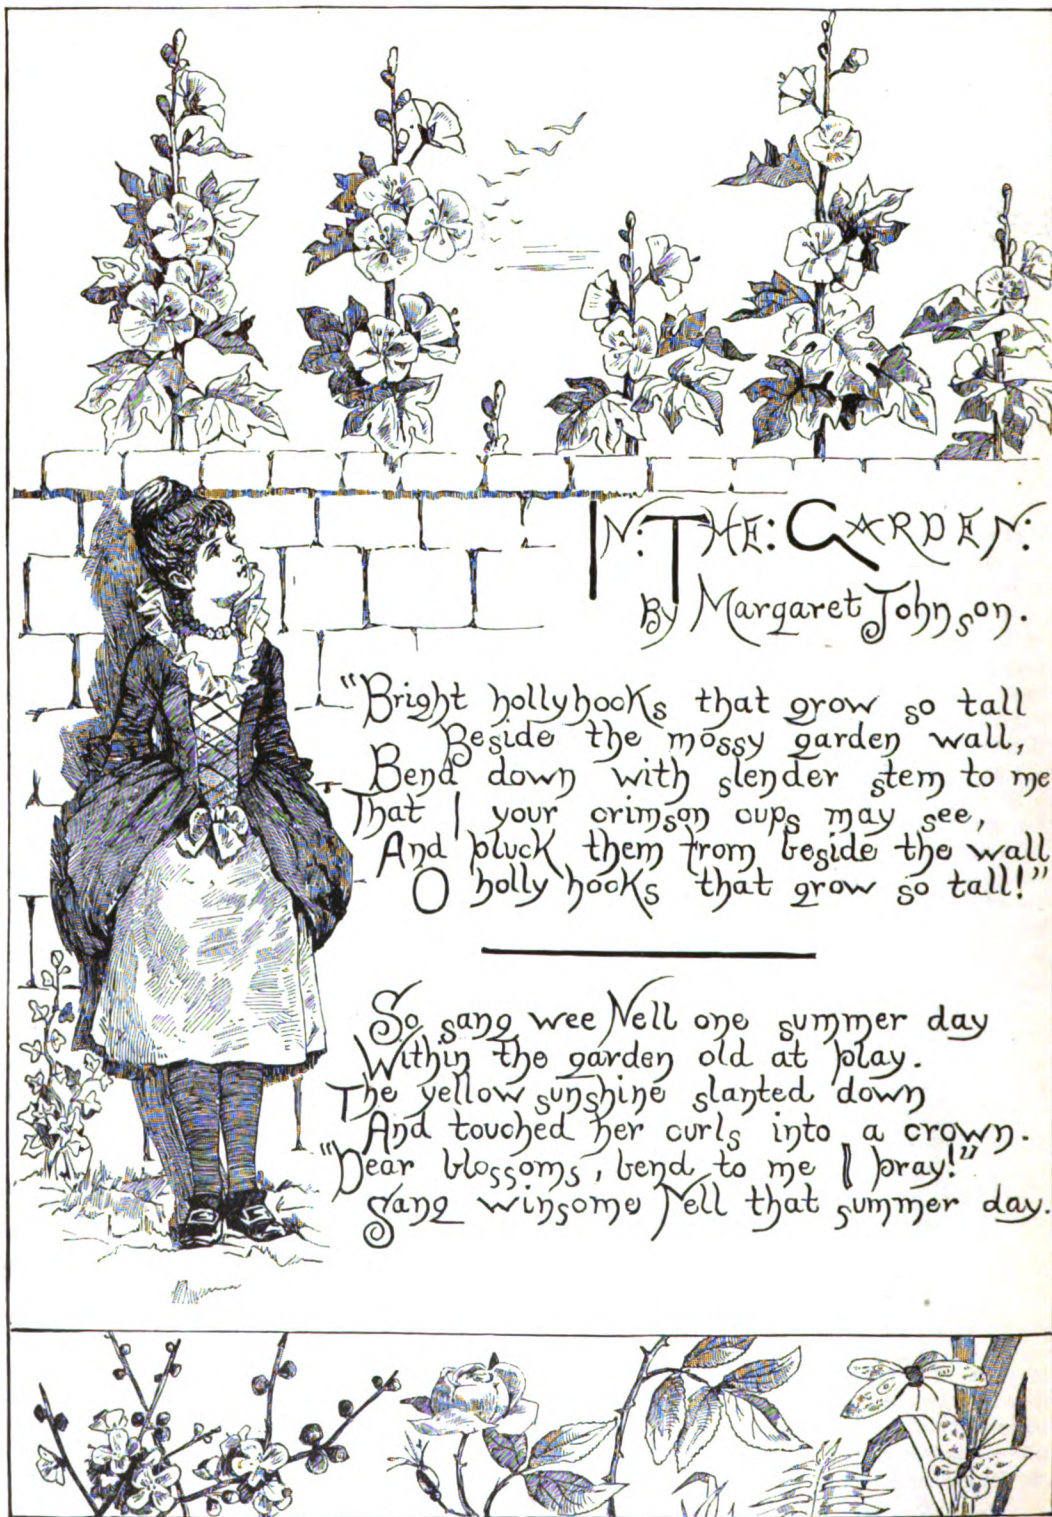 IN: THE: GARDEN:
By Margaret Johnson.
"Bright hollyhocks that grow so tall
Beside the mossy garden wall,
Bend down with slender stem to me
That I your crimson cups may see,
And pluck them from beside the wall
O holly hocks that grow so tall!"
So sang wee Nell one summer day
Within the garden old at play.
The yellow sunshine slanted down
And touched her curls into a crown.
"Dear blossoms, bend to me I pray!"
Sang winsome Nell that summer day.